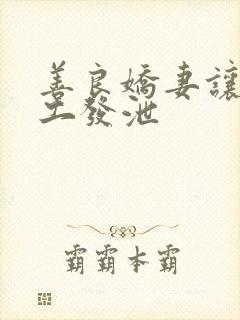 善良嬌妻讓
工發泄
霸霸本霸